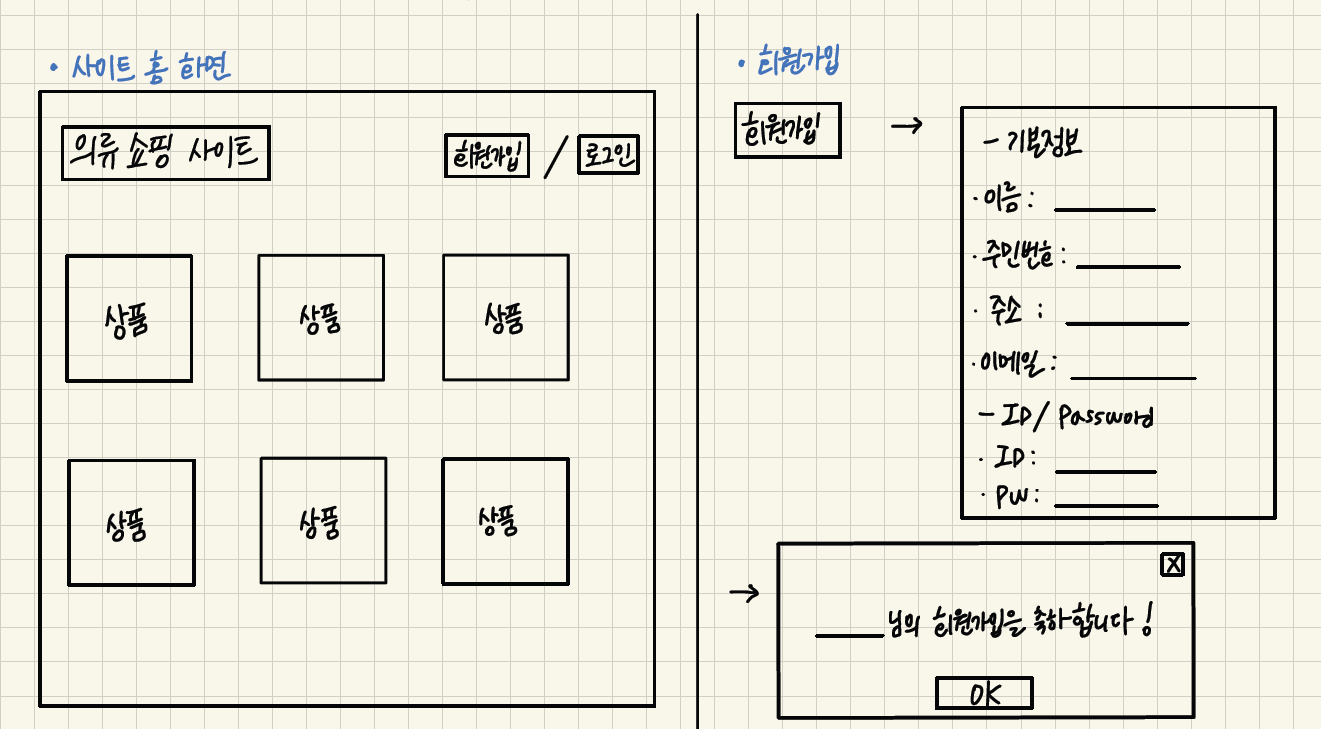 • 사이트 홈 화면
의류 쇼핑 사이트
회원가입 / 로그인
상품 상품 상품
상품 상품 상품
• 회원가입
회원가입 →
- 기본정보
· 이름 :
· 주민번호 :
· 주소 :
· 이메일 :
- ID / Password
· ID :
· PW :
→
X
____님의 회원가입을 축하합니다!
OK